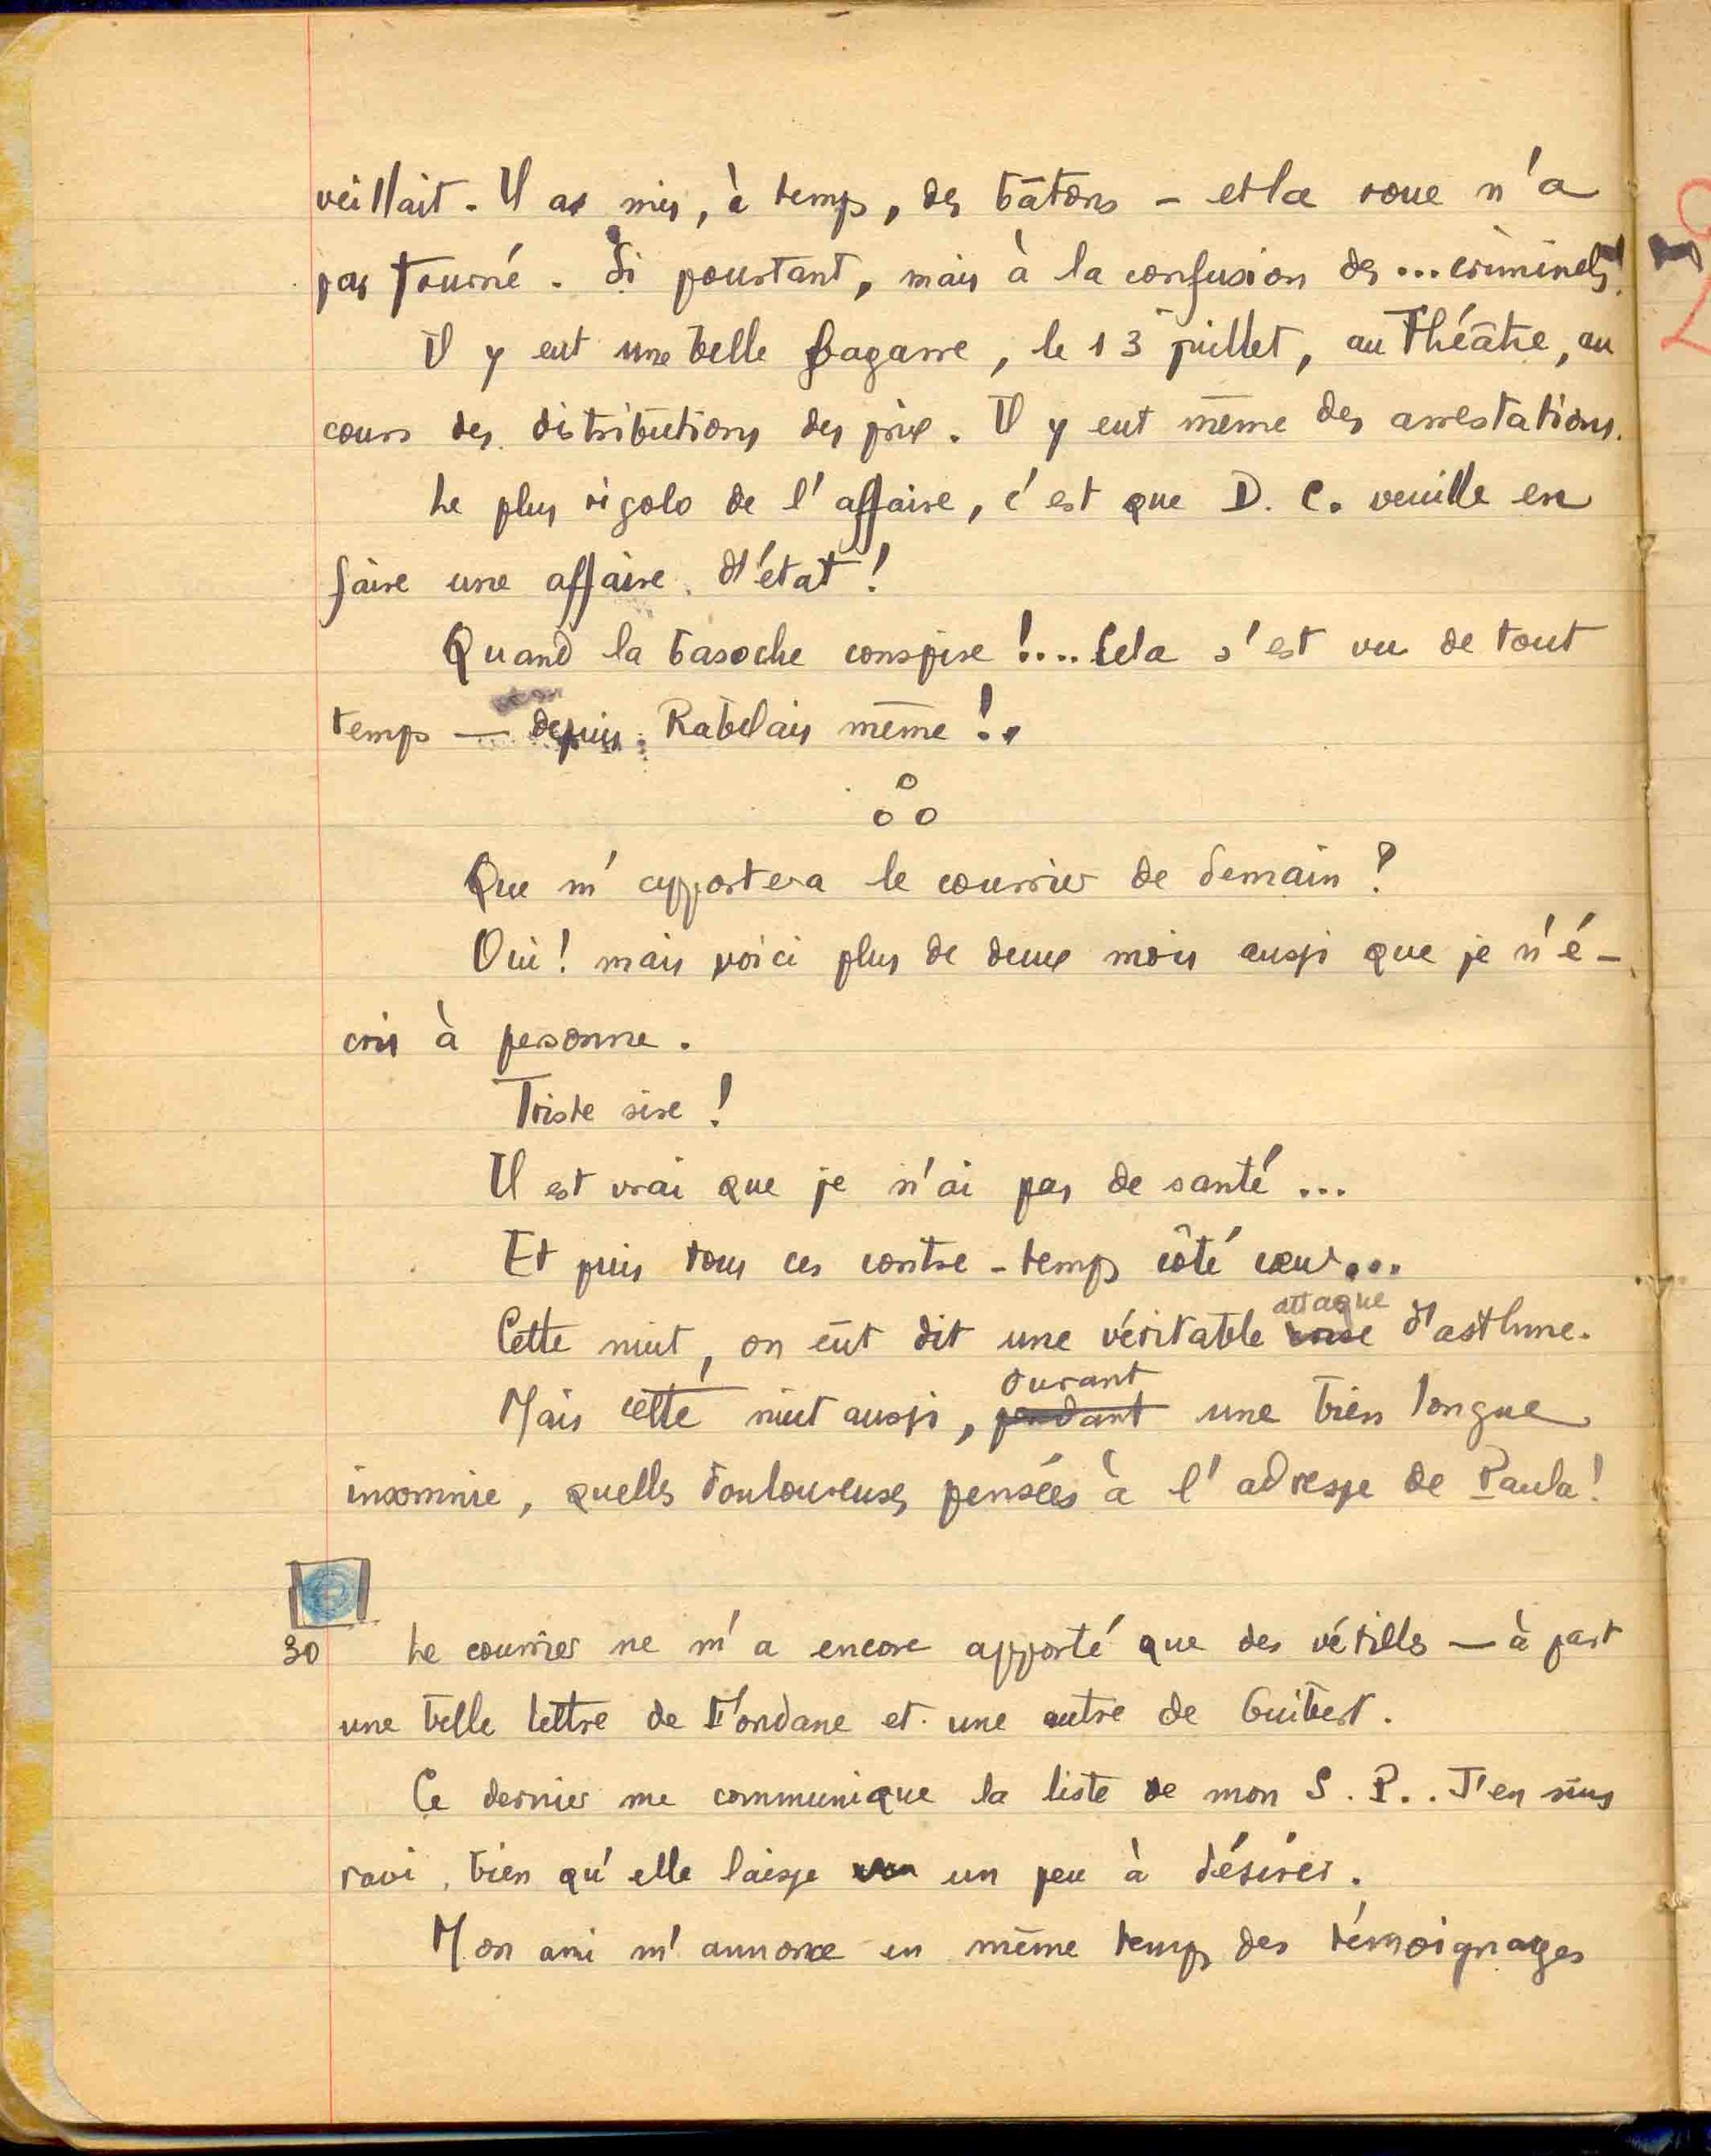 veillait. Il a mis, à temps, des bâtons – et la roue n'a
pas tourné. Si pourtant, mais à la confusion des ... criminels!
Il y eut une belle bagarre, le 13 juillet, au Théâtre, au
cours des distributions des prix. Il y eut même des arrestations.
Le plus rigolo de l'affaire, c'est que D. C. veuille en
faire une affaire d'état!
Quand la basoche conspire!.... Cela s'est vu de tout
temps — depuis Rabelais même!..
Que m'apportera le courrier de demain?
Oui! mais voici plus de deux mois aussi que je n'é-
cris à personne.
Triste sire!
Il est vrai que je n'ai pas de santé...
Et puis tous ces contre-temps côté cœur...
Cette nuit, on eût dit une véritable attaque d'asthme.
Mais cette nuit aussi, pendant durant une bien longue
insomnie, quelles douloureuses pensées à l'adresse de Paula!
30 Le courrier ne m'a encore apporté que des vétilles — à part
une belle lettre de Fondane et une autre de Guibert.
Ce dernier me communique la liste de mon S. P.. J'en suis
ravi, bien qu'elle laisse un peu à désirer.
Mon ami m'annonce en même temps des témoignages